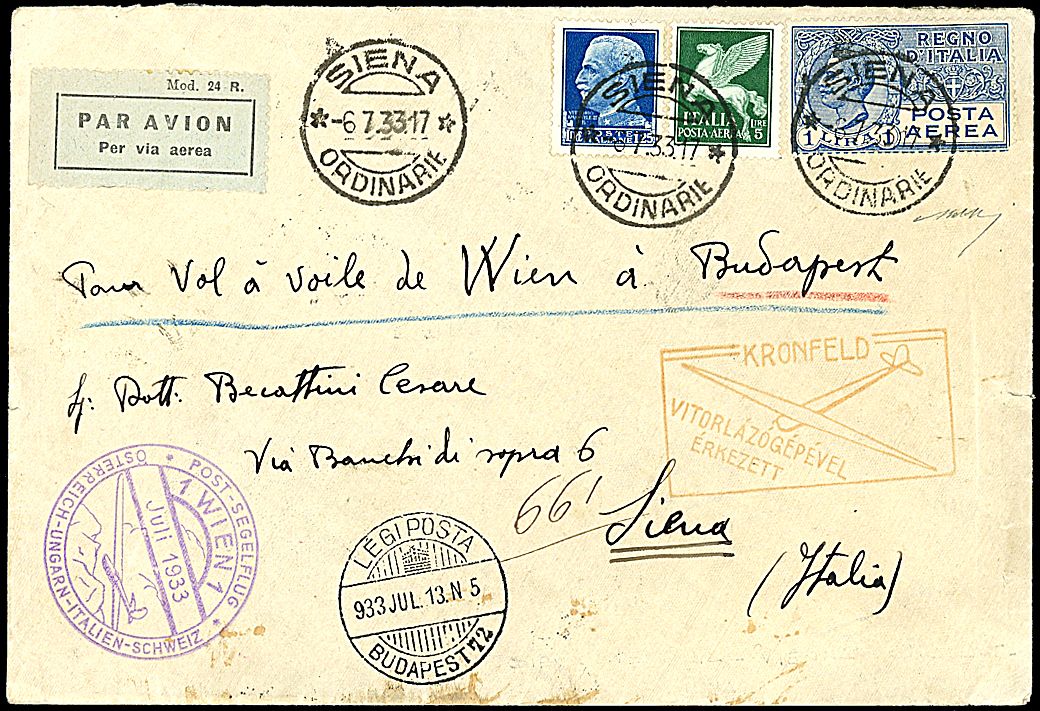 Mod. 24 R.
PAR AVION
Per via aerea
SIENA
-6 7.33.17
ORDINARIE
ITALIA
POSTA-AEREA LIRE 5
SIENA
-6 7.33 17
ORDINARIE
REGNO
D'ITALIA
POSTA
AEREA
1 LIRA 1
SIENA
ORDINARIE
Pour Vol à voile de Wien à Budapest
Dott: Becattini Cesare
Via Banchi di sopra 6
66'
Siena
(Italia)
KRONFELD
VITORLÁZÓGÉPÉVEL
ÉRKEZETT
POST-SEGELFLUG
ÖSTERREICH-UNGARN-ITALIEN-SCHWEIZ
1 WIEN 1
Juli 1933
LÉGIPOSTA
933 JUL. 13. N 5
BUDAPEST 72